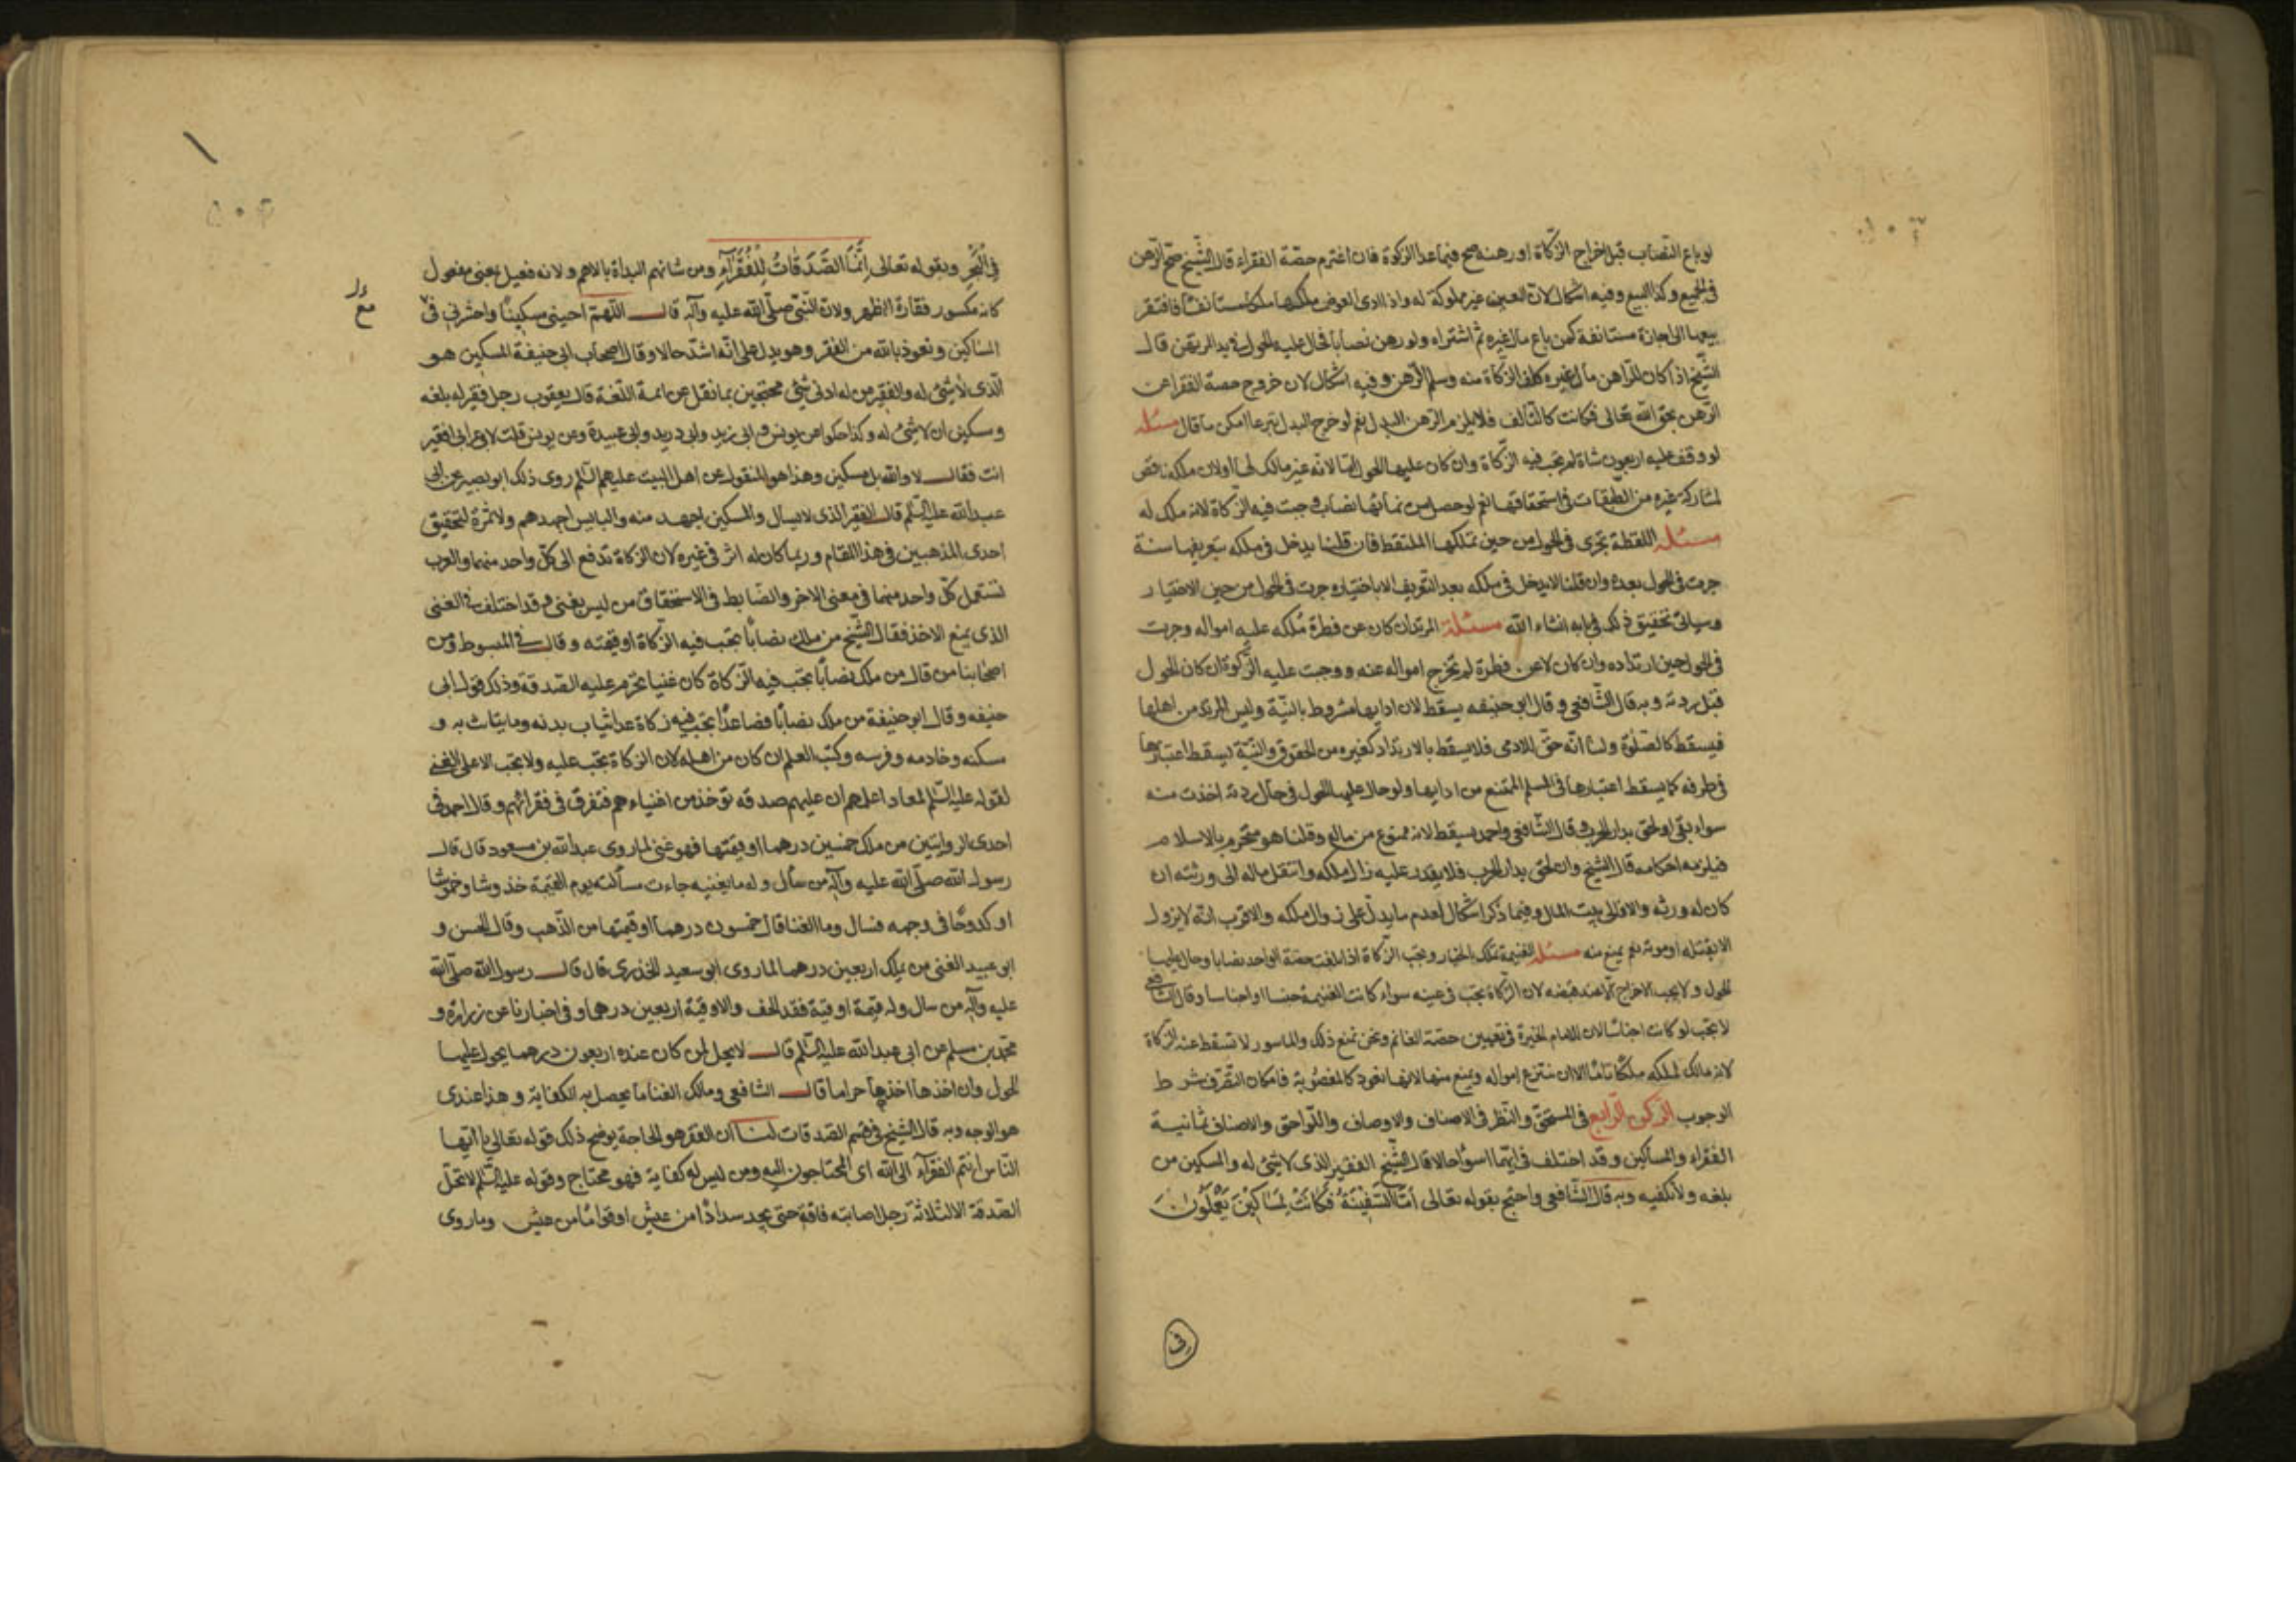 لو باع النصاب قبل اخراج الزكاة او رهنه صح فيما عدا الزكوة فان اغترم حصة الفقراء قال الشيخ صح الرهن
فى الجميع وكذا البيع وفيه اشكال لان العين غير مملوكة له واذا ادى العوض ملكها ملكا مستانفا فافتقر
بيعها الى اجازة مستانفة كمن باع مال غيره ثم اشتراه ولو رهن نصابا فحال عليه الحول فى يد المرتهن قال
الشيخ اذا كان للراهن مال غيره كلف الزكاة منه وسلم الرهن وفيه اشكال لان خروج حصة الفقرا عن
الرهن بحق الله تعالى فكانت كالتالف فلا يلزم الرهن البدل نعم لو خرج البدل تبرعا امكن ما قال مسئله
لو وقف عليه اربعون شاة لم تجب فيه الزكاة وان كان عليها الحول لانه غير مالك لها او لان ملكه ناقص
لمشاركة غيره من الطبقات فى استحقاقها نعم لو حصل من نمائها نصاب وجبت فيه الزكاة لانه ملك له
مسئله اللقطة تجرى فى الحول من حين تملكها الملتقط فان قلنا يدخل فى ملكه بتعريفها سنة
جرت فى الحول بعده وان قلنا لا يدخل فى ملكه بعد التعريف الا باختياره جرت فى الحول من حين الاختيار
وسيأتى تحقيق ذلك فى بابه انشاء الله مسئلة المرتد ان كان عن فطرة ملكه عليه امواله وجرت
فى الحول حين ارتداده وان كان لا عن فطرة لم تخرج امواله عنه ووجبت عليه الزكوة ان كان الحول
قبل ردته وبه قال الشافعى وقال ابو حنيفه يسقط لان ادايها مشروط بالنية وليس المرتد من اهلها
فيسقط كالصلوة ولنا انه حق للادمى فلا يسقط بالارتداد كغيره من الحقوق والنية يسقط اعتبارها
فى طرفه كما يسقط اعتبارها فى المسلم الممتنع من ادايها ولو حال عليها الحول فى حال ردته اخذت منه
سواء بقى او لحق بدار الحرب وقال الشافعى واحمد يسقط لانه ممنوع من ماله وقلنا هو متحرم بالاسلام
فيلزمه احكامه قال الشيخ وان لحق بدار الحرب فلا يقدر عليه زال ملكه وانتقل ماله الى ورثته ان
كان له ورثه والا فالى بيت المال وفيما ذكر اشكال لعدم ما يدل على زوال ملكه والاقرب انه لا يزول
الا بقتله او موته نعم يمنع منه مسئله الغنيمة تملك بالخيار وتجب الزكاة اذا بلغت حصة الواحد نصابا وحال عليها
الحول ولا يجب الاخراج الا عند قبضه لان الزكاة تجب فى عينه سواء كانت الغنيمة جنسا او اجناسا وقال الشافعى
لا تجب لو كانت اجناسا لان للامام الخيرة فى تعيين حصة الغانم ونحن نمنع ذلك والماسور لا تسقط عنه الزكاة
لانه مالك لملكه ملكا تاما الا ان ينتزع امواله ويمنع منها لانها تعود كالمغصوبة فامكان التصرف شرط
الوجوب الركن الرابع فى المستحق والنظر فى الاصناف والاوصاف واللواحق والاصناف ثمانية
الفقراء والمساكين وقد اختلف فى ايهما اسوأ حالا قال الشيخ الفقير الذى لا شئ له والمسكين من
بلغه ولا تكفيه وبه قال الشافعى واحتج بقوله تعالى اما السفينة فكانت لمساكين يعملون
فى
فى البحر وبقوله تعالى انما الصدقات للفقراء ومن شانهم البداة بالاهم ولانه فعيل بمعنى مفعول
كانه مكسور فقارة الظهر ولان النبى صلى الله عليه وآله قال اللهم احينى مسكينا واحشرنى فى
المساكين وتعوذ بالله من الفقر وهو يدل على انه اشد حالا وقال اصحاب ابى حنيفة المسكين هو
الذى لا شئ له والفقير من له ادنى شئ محتجين بما نقل عن ائمة اللغة قال يعقوب رجل فقير له بلغه
ومسكين ان لا شئ له وكذا حكوا عن يونس وابى زيد وابى دريد وابى عبيدة وعن يونس قلت لاعرابى افقير
انت فقال لا والله بل مسكين وهذا هو المنقول عن اهل البيت عليهم السلم روى ذلك ابو بصير عن ابى
عبد الله عليه السلم قال الفقير الذى لا يسأل والمسكين اجهد منه والبايس اجهدهم ولا ثمرة لتحقيق
احدى المذهبين فى هذا المقام وربما كان له اثر فى غيره لان الزكاة تدفع الى كل واحد منهما والعرب
تستعمل كل واحد منهما فى معنى الاخر والضابط فى الاستحقاق من ليس بغنى وقد اختلف فى الغنى
الذى يمنع الاخذ فقال الشيخ من ملك نصابا تجب فيه الزكاة او قيمته وقال فى المبسوط وفى
اصحابنا من قال من ملك نصابا تجب فيه الزكاة كان غنيا تحرم عليه الصدقة وذلك قول ابى
حنيفه وقال ابو حنيفة من ملك نصابا فصاعدا تجب فيه زكاة عدا ثياب بدنه وما يتاث به و
سكنه وخادمه وفرسه وكتب العلم ان كان من اهله لان الزكاة تجب عليه ولا تجب الا على الغنى
لقوله عليه السلم لمعاد اعلمهم ان عليهم صدقه توخذ من اغنياءهم فتفرق فى فقرائهم وقال احمد فى
احدى الروايتين من ملك خمسين درهما او قيمتها فهو غنى لما روى عبد الله بن مسعود قال قال
رسول الله صلى الله عليه وآله من سأل وله ما يغنيه جاءت مسألته يوم القيمة خدوشا وخموشا
او كدوحا فى وجهه فسال وما الغنا قال خمسون درهما او قيمتها من الذهب وقال الحسن و
ابو عبيد الغنى من يملك اربعين درهما لما روى ابو سعيد الخدرى قال قال رسول الله صلى الله
عليه وآله من سال وله قيمة اوقية فقد الحف والاوقية اربعين درهما وفى اخبارنا عن زرارة و
محمد بن مسلم عن ابى عبد الله عليه السلم قال لا يحل لمن كان عنده اربعون درهما يحول عليها
الحول وان اخذها اخذها حراما قال الشافعى ومالك الغنا ما يحصل به الكفاية وهذا عندى
هو الوجه وبه قال الشيخ فى قسم الصدقات لنا ان الفقر هو الحاجة يوضح ذلك قوله تعالى يا ايها
الناس انتم الفقراء الى الله اى المحتاجون اليه ومن ليس له كفاية فهو محتاج وقوله عليه السلم لا تحل
الصدقة الا لثلاثة رجل اصابته فاقة حتى يجد سدادا من عيش او قواما من عيش وما روى